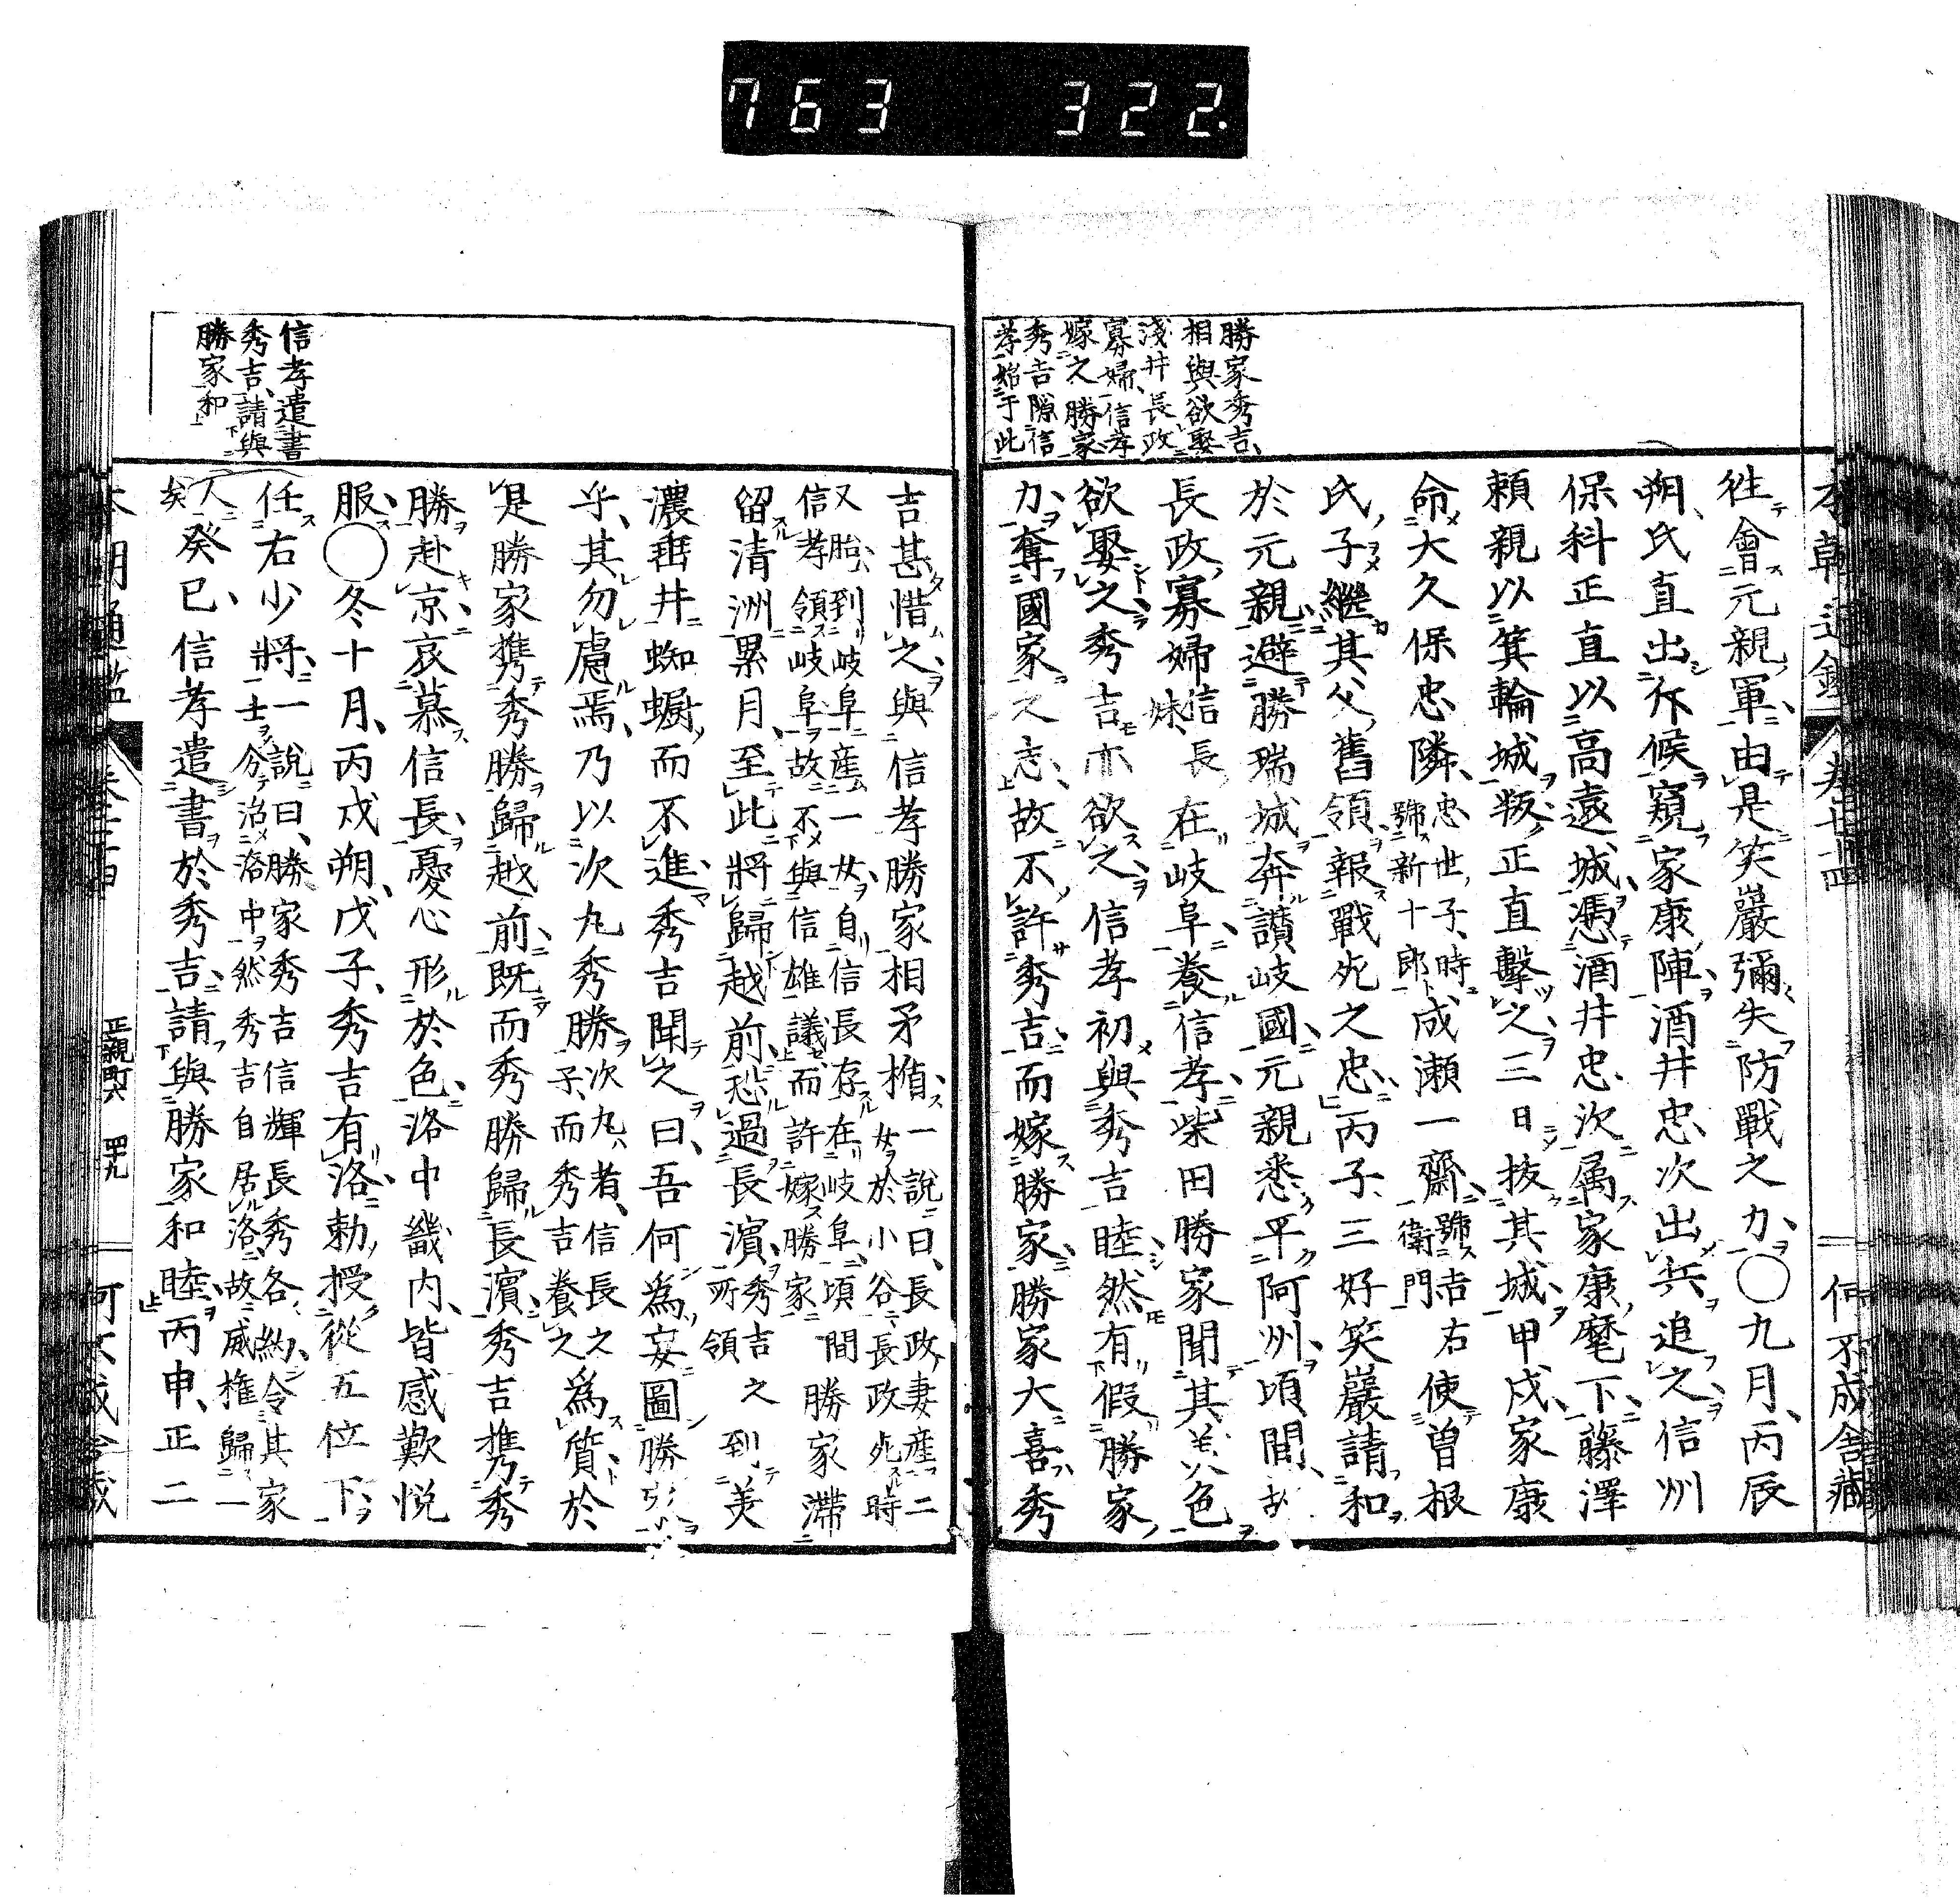 763 322.
勝家秀吉、
相與欲娶
淺井長政
寡婦、信孝
嫁之勝家
秀吉隙信
孝始于此
徃會元親軍、由是笑巖彌失防戰之力、〇九月、丙辰
朔、氏直出斥候窺家康陣、酒井忠次出兵追之、信州
保科正直以高遠城、憑酒井忠次属家康麾下、藤澤
頼親以箕輪城叛、正直擊之、三日拔其城、甲戌、家康
命大久保忠隣、忠世子、時號新十郎成瀬一齋、號吉右衛門使曽根
氏子繼其父舊領、報戰死之忠、丙子、三好笑巖請和
於元親、避勝瑞城、奔讃岐國、元親悉平阿州、頃間、故
長政寡婦信長妹、在岐阜、養信孝、柴田勝家聞其美色
欲娶之、秀吉亦欲之、信孝初與秀吉睦、然有假勝家
力奪國家之志、故不許秀吉、而嫁勝家、勝家大喜、秀
信孝遣書
秀吉、請與
勝家和
吉甚惜之、與信孝勝家相矛楯、一說曰、長政妻産二女於小谷、長政死時
又胎、到岐阜産一女、自信長存在岐阜、頃間勝家滯
信孝領岐阜、故不與信雄議、而許嫁勝家
留清洲累月、至此將歸越前、恐過長濱、秀吉之所領到美
濃垂井、蜘蹰而不進、秀吉聞之曰、吾何為妄圖勝家
乎、其勿慮焉、乃以次丸秀勝次丸者、信長之子、而秀吉養之為質、於
是勝家攜秀勝歸越前、既而秀勝歸長濱、秀吉攜秀
勝赴京、哀慕信長、憂心形於色、洛中畿内、皆感歎悦
服、〇冬十月、丙戌朔、戊子、秀吉有洛、勅授從五位下、
任右少將、一說曰、勝家秀吉信輝長秀各約、令其家士分治洛中、然秀吉自居洛、故威権歸一
人矣癸巳、信孝遣書於秀吉、請與勝家和睦、丙申、正二
正親町六 四十九